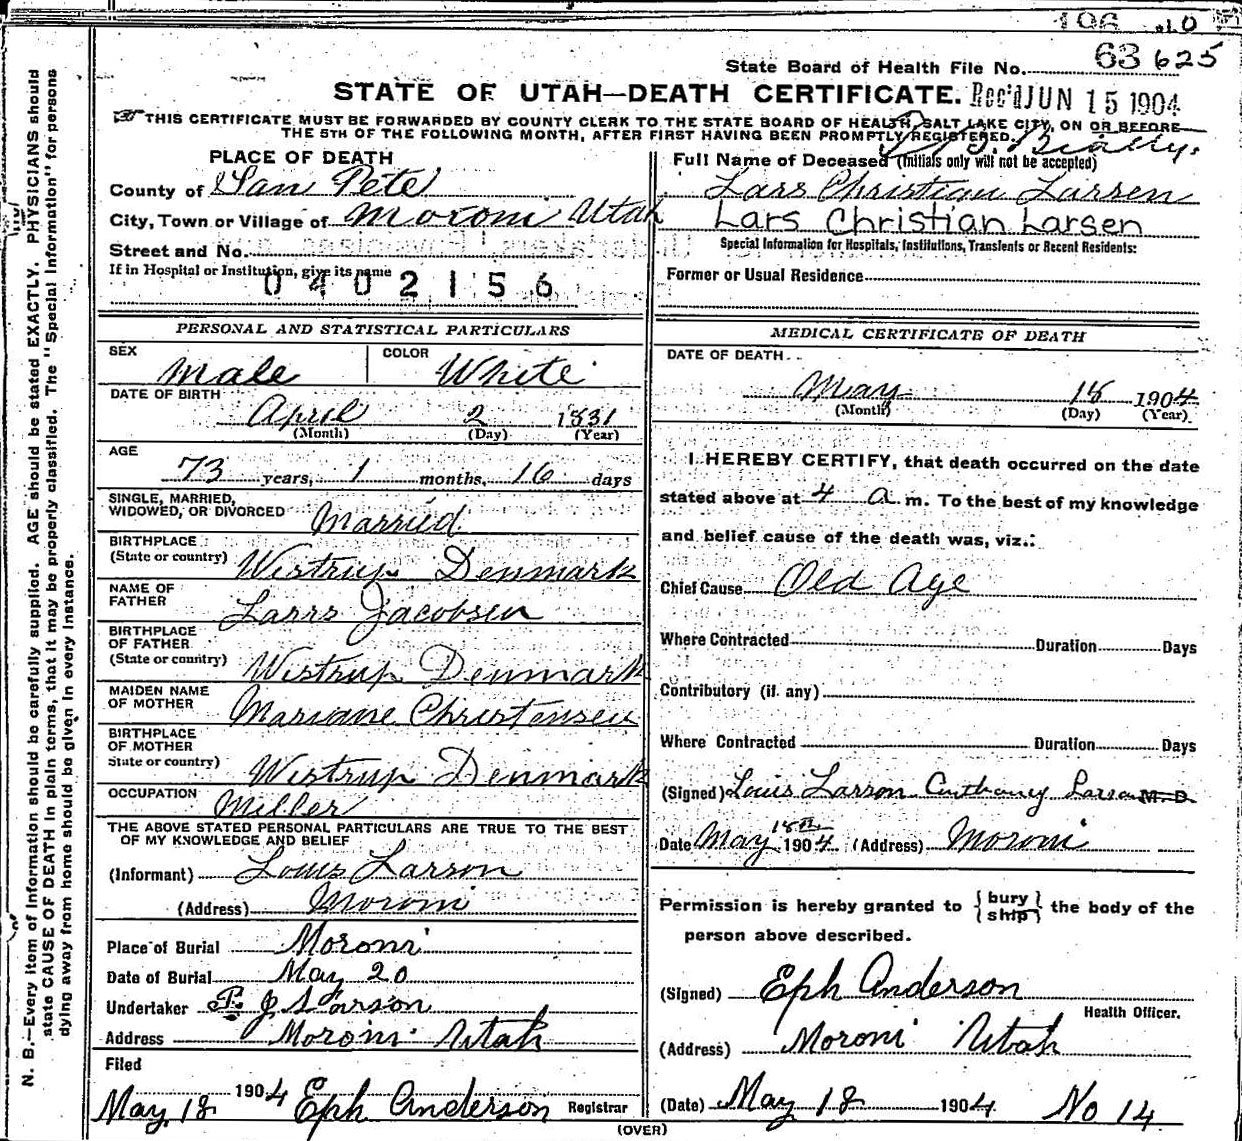 196 10
State Board of Health File No. 63625
STATE OF UTAH—DEATH CERTIFICATE. Rec'd JUN 15 1904
THIS CERTIFICATE MUST BE FORWARDED BY COUNTY CLERK TO THE STATE BOARD OF HEALTH, SALT LAKE CITY, ON OR BEFORE
THE 5TH OF THE FOLLOWING MONTH, AFTER FIRST HAVING BEEN PROMPTLY REGISTERED.
PLACE OF DEATH
County of San Pete
City, Town or Village of Moroni Utah
Street and No.
If in Hospital or Institution, give its name
0402156
Full Name of Deceased (Initials only will not be accepted)
Lars Christian Larsen
Lars Christian Larsen
Special Information for Hospitals, Institutions, Transients or Recent Residents:
Former or Usual Residence
PERSONAL AND STATISTICAL PARTICULARS
SEX Male COLOR White
DATE OF BIRTH
April 2 1831
(Month) (Day) (Year)
AGE
73 years, 1 months, 16 days
SINGLE, MARRIED,
WIDOWED, OR DIVORCED Married
BIRTHPLACE
(State or country) Wistrup Denmark
NAME OF
FATHER Larrs Jacobsen
BIRTHPLACE
OF FATHER
(State or country) Wistrup Denmark
MAIDEN NAME
OF MOTHER Mariane Christensen
BIRTHPLACE
OF MOTHER
State or country) Wistrup Denmark
OCCUPATION Miller
THE ABOVE STATED PERSONAL PARTICULARS ARE TRUE TO THE BEST
OF MY KNOWLEDGE AND BELIEF
(Informant) Louis Larson
(Address) Moroni
Place of Burial Moroni
Date of Burial May 20
Undertaker P. J. S Larson
Address Moroni Utah
Filed
May 18 1904 Eph Anderson Registrar
MEDICAL CERTIFICATE OF DEATH
DATE OF DEATH
May 18 1904
(Month) (Day) (Year)
I HEREBY CERTIFY, that death occurred on the date
stated above at 4 a m. To the best of my knowledge
and belief cause of the death was, viz.:
Chief Cause Old Age
Where Contracted Duration Days
Contributory (if any)
Where Contracted Duration Days
(Signed) Louis Larson Anthoney Larson M. D.
Date May 18th 1904 (Address) Moroni
Permission is hereby granted to {bury
ship} the body of the
person above described.
(Signed) Eph Anderson
Health Officer.
(Address) Moroni Utah
(Date) May 18 1904 No 14
(OVER)
N. B.—Every item of information should be carefully supplied. AGE should be stated EXACTLY. PHYSICIANS should
state CAUSE OF DEATH in plain terms, that it may be properly classified. The "Special Information" for persons
dying away from home should be given in every instance.